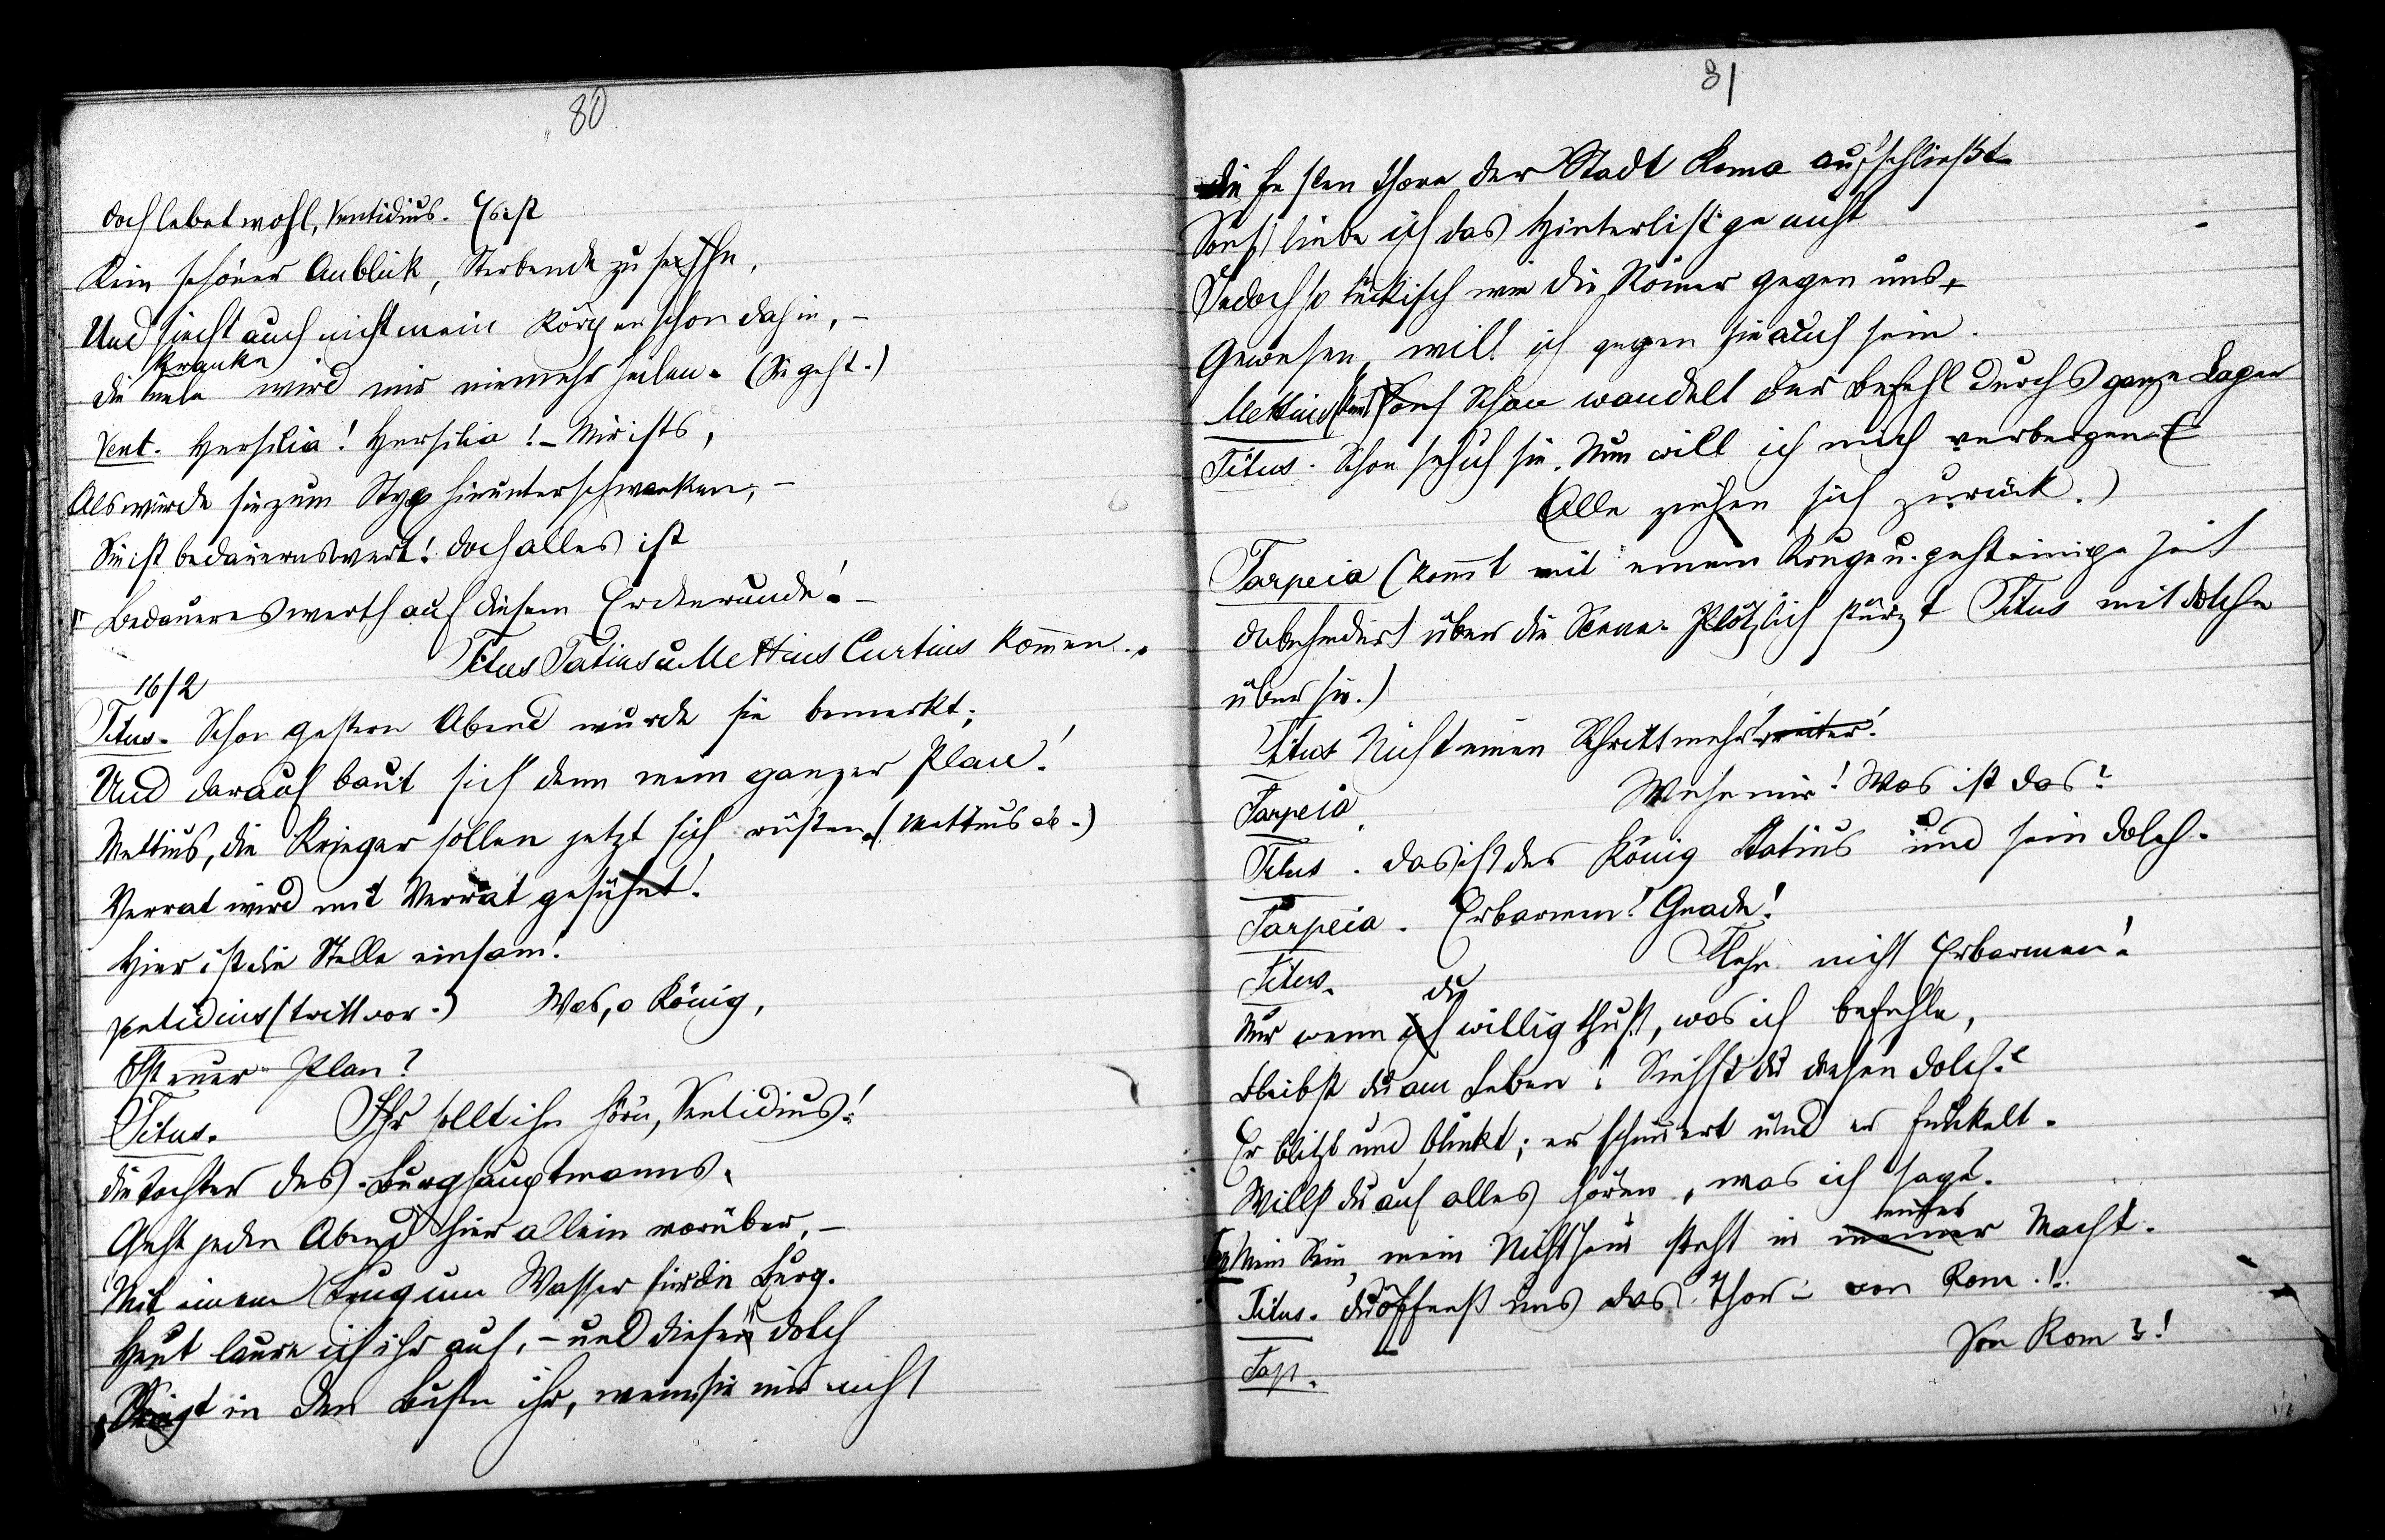 80
Doch lebet wohl, Ventidius. Es ist
Kein schöner Anblick, Sterbende zu sehn,
Und siecht auch nicht mein Körper schon dahin, –
kranke
Die Seele wird mir niemehr heilen. (Sie geht.)
Vent. Hersilia! Hersilia! – Mir ists,
Als würde sie zum Styx hinunterschwanken, –
Sie ist bedauernswert! Doch alles ist
Bedauernswerth auf diesem Erdenrunde! –
Titus Tatius u. Mettius Curtius kommen.
16/2
Titus. Schon gestern Abend wurde sie bemerkt;
Und darauf baut sich denn mein ganzer Plan!
Mettius, die Krieger sollen jetzt sich rüsten. (Mettius ab.)
Verrat wird mit Verrat gesühnt!
Hier ist die Stelle einsam!
Ventidius (tritt vor.) Was, o König,
Ist euer Plan?
Titus. Ihr sollt ihn hörn, Ventidius!
Die Tochter des Burghauptmanns,
Geht jeden Abend hier allein vorüber, –
Mit einem Krug um Wasser für die Burg.
Heut laure ich ihr auf, – und dieser Dolch
Dringt in den Busen ihr, wenn sie mir nicht
81
Die festen Thore der Stadt Roma aufschließt.
Sonst liebe ich das Hinterlistge nicht
Jedoch so tückisch wie die Römer gegen uns
Gewesen, will ich gegen sie auch sein.
Mettius (kommt) Schon wandelt der Befehl durchs ganze Lager
Titus. Schon seh ich sie. Nun will ich mich verbergen
(Alle ziehen sich zurück.)
Tarpeia (kommt mit einem Kruge u. geht einige Zeit
über die Scene. Plötzlich stürzt Titus mit Dolche
über sie.)
Titus Nicht einen Schritt mehr! weiter!
Tarpeia. Wehe mir! Was ist das?
Titus. Das ist der König Tatius und sein Dolch.
Tarpeia. Erbarmen! Gnade!
Titus. Flehe nicht Erbarmen!
du
Nur wenn ich willig thust, was ich befehle,
Bleibst du am Leben! Siehst du diesen Dolch?
Er blitzt und blinkt; er schimmert und er funkelt.
Willst du auf alles hören, was ich sage?
eurer
Tarp. Mein Sein, mein Nichtsein steht in meiner Macht.
Titus. Du öffnest uns das Thor – von Rom!
Tarp. Von Rom?!